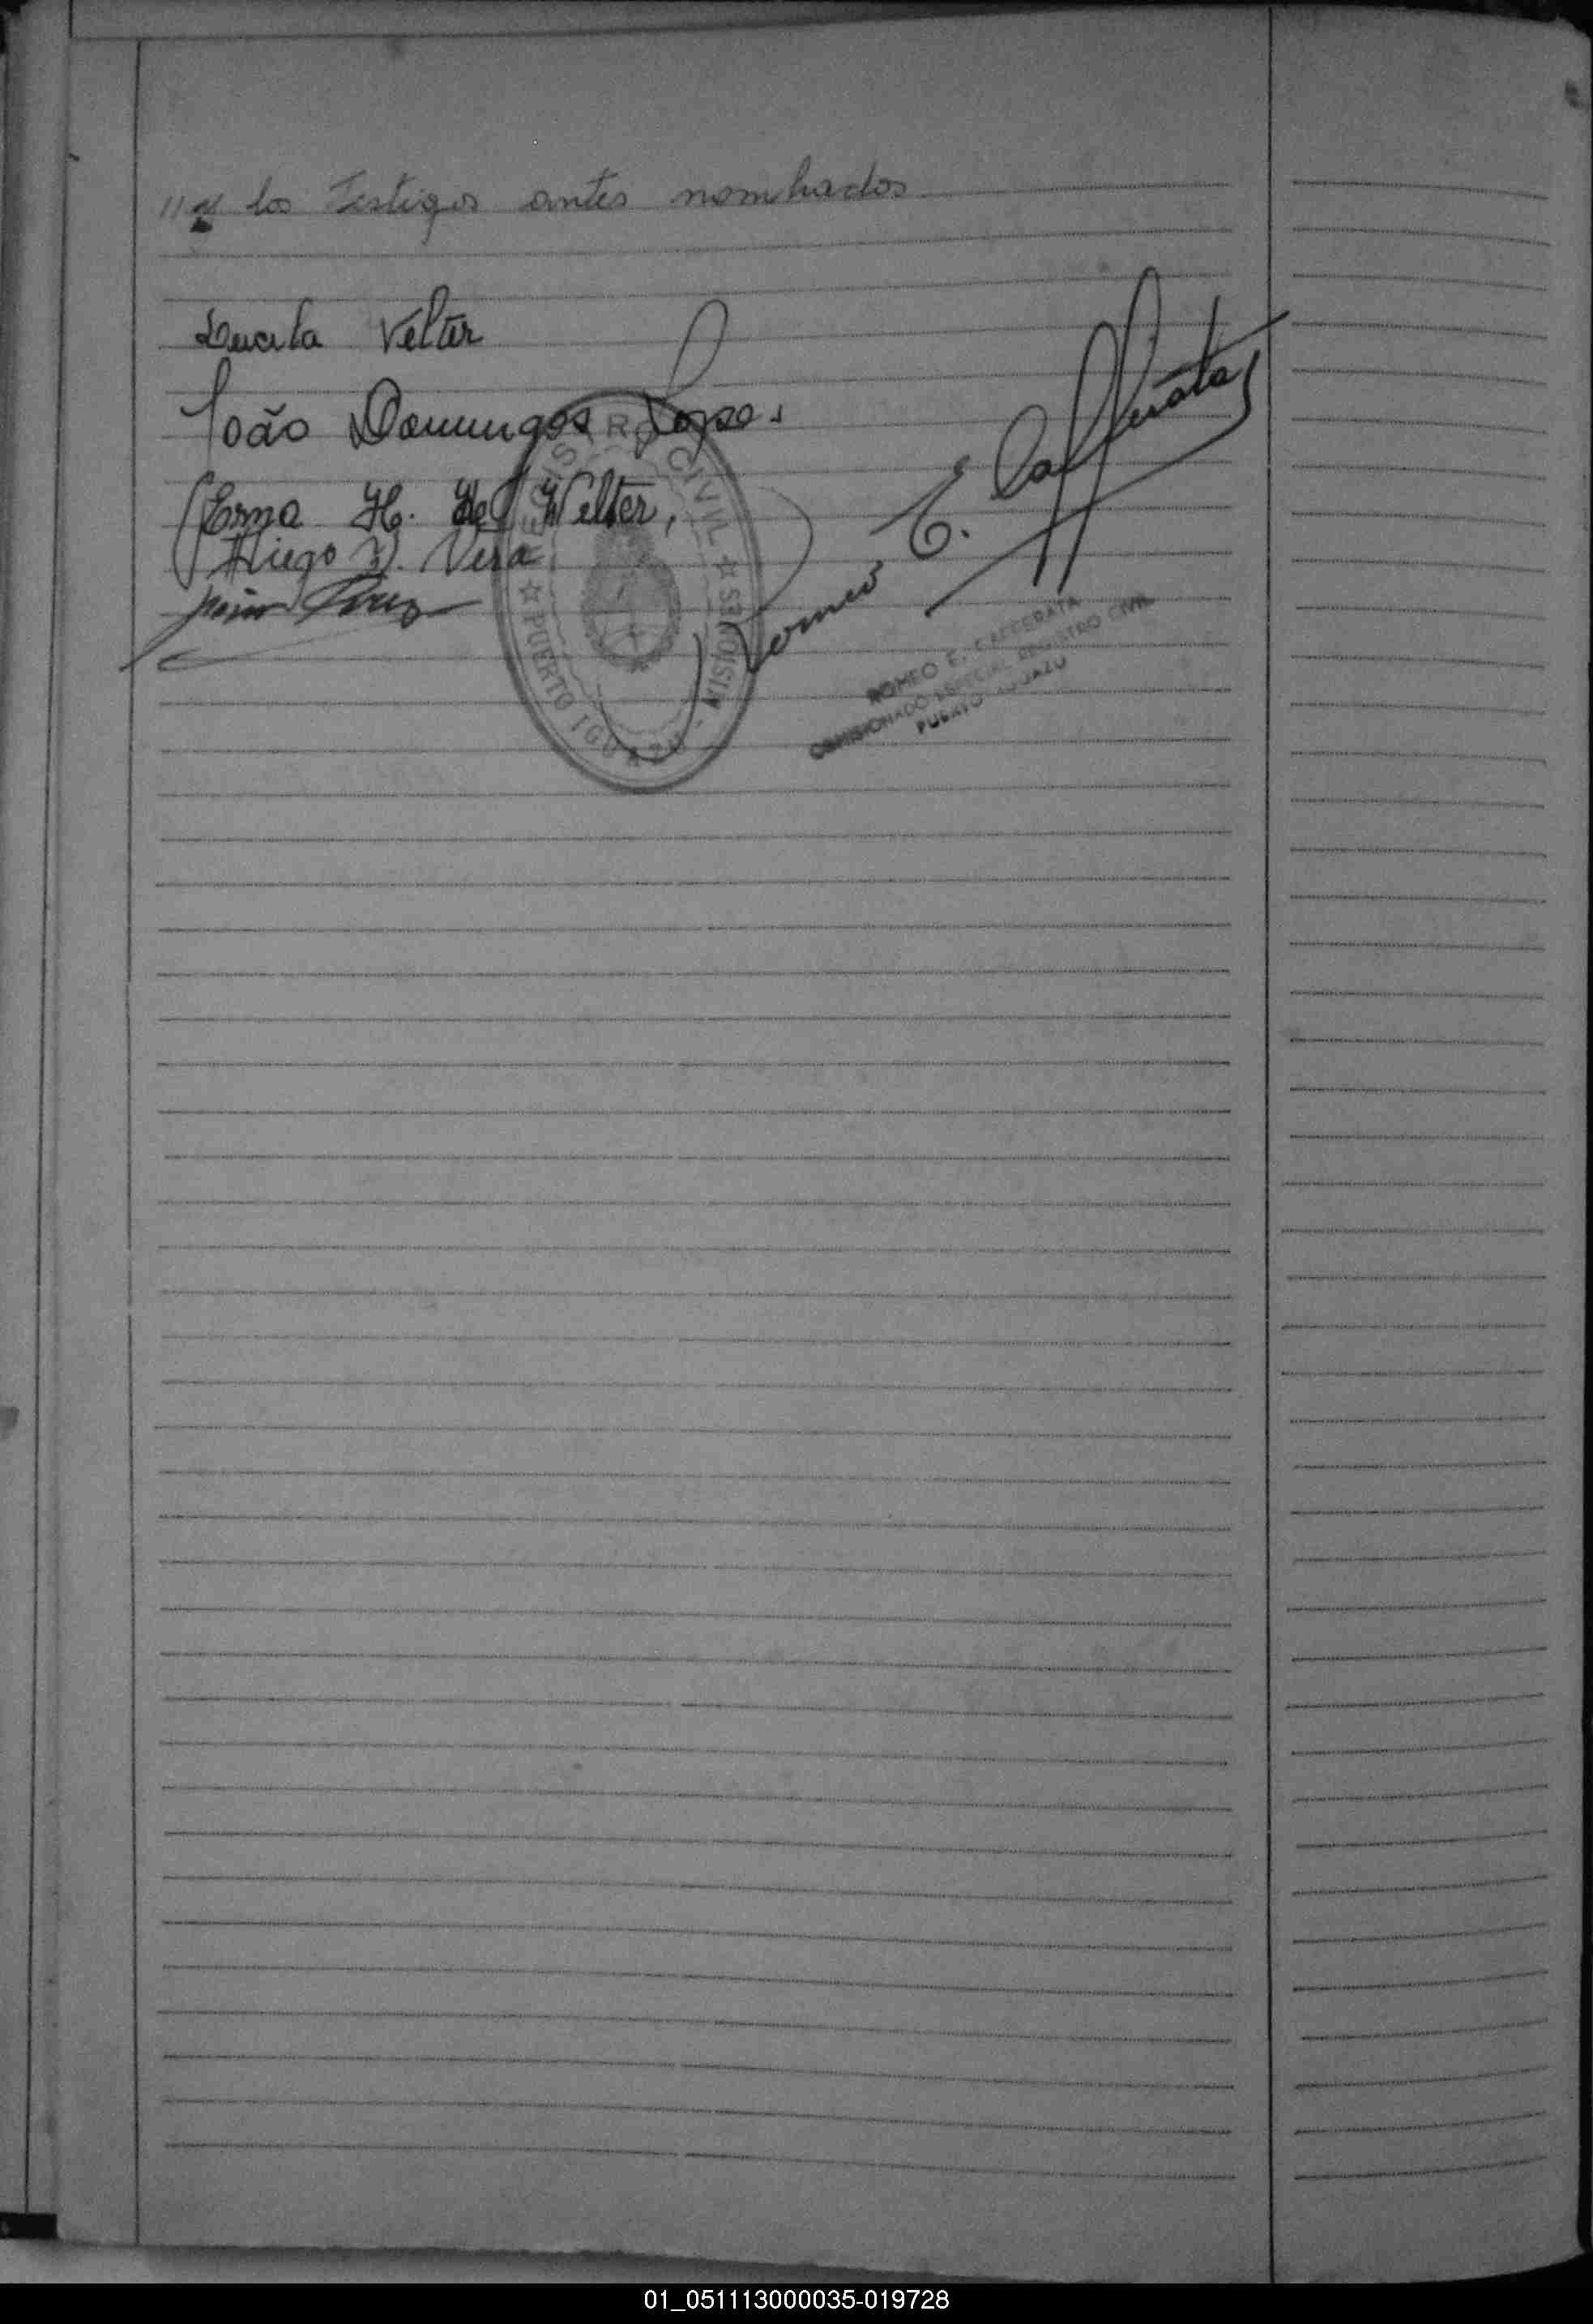 // y los Testigos antes nombrados
Lucila Velter
João Domingos Lopes.
Erma H. de Welter,
Diego D. Vera
Romeo E. Cafferata
REGISTRO CIVIL
☆ PUERTO IGUAZU - MISIONES ☆
ROMEO E. CAFFERATA
COMISIONADO ESPECIAL REGISTRO CIVIL
PUERTO IGUAZU
01_051113000035-019728